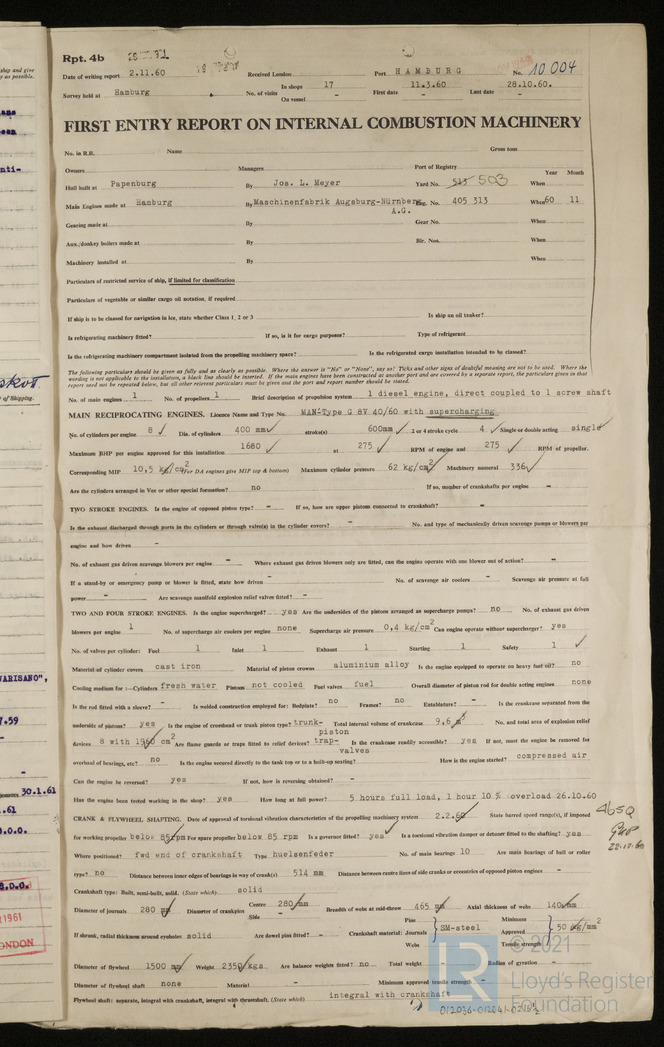 Rpt. 4b
Date of writing report 2.11.60 Received London Port HAMBURG No. 10 004
Survey held at Hamburg No. of visits In shops 17 On vessel - First date 11.3.60 Last date 28.10.60.
FIRST ENTRY REPORT ON INTERNAL COMBUSTION MACHINERY
No. in R.B. Name Gross tons
Owners Managers Port of Registry
Year Month
Hull built at Papenburg By Jos. L. Meyer Yard No. 513 503 When
Main Engines made at Hamburg By Maschinenfabrik Augsburg-Nürnberg A.G. Eng. No. 405 313 When 60 11
Gearing made at By Gear No. When
Aux./donkey boilers made at By Blr. Nos. When
Machinery installed at By When
Particulars of restricted service of ship, if limited for classification
Particulars of vegetable or similar cargo oil notation, if required
If ship is to be classed for navigation in ice, state whether Class 1, 2 or 3 Is ship an oil tanker?
Is refrigerating machinery fitted? If so, is it for cargo purposes? Type of refrigerant
Is the refrigerating machinery compartment isolated from the propelling machinery space? Is the refrigerated cargo installation intended to be classed?
The following particulars should be given as fully and as clearly as possible. Where the answer is "No" or "None", say so! Ticks and other signs of doubtful meaning are not to be used. Where the
wording is not applicable to the installation, a black line should be inserted. If the main engines have been constructed at another port and are covered by a separate report, the particulars given in that
report need not be repeated below, but all other relevant particulars must be given and the port and report number should be stated.
No. of main engines 1 No. of propellers 1 Brief description of propulsion system 1 diesel engine, direct coupled to 1 screw shaft
MAIN RECIPROCATING ENGINES. Licence Name and Type No. MAN-Type G 8V 40/60 with supercharging
No. of cylinders per engine 8 Dia. of cylinders 400 mm stroke(s) 600mm 2 or 4 stroke cycle 4 Single or double acting single
Maximum BHP per engine approved for this installation 1680 at 275 RPM of engine and 275 RPM of propeller.
Corresponding MIP 10,5 kg/cm2 (For DA engines give MIP top & bottom) Maximum cylinder pressure 62 kg/cm2 Machinery numeral 336
Are the cylinders arranged in Vee or other special formation? no If so, number of crankshafts per engine -
TWO STROKE ENGINES. Is the engine of opposed piston type? - If so, how are upper pistons connected to crankshaft? -
Is the exhaust discharged through ports in the cylinders or through valve(s) in the cylinder covers? - No. and type of mechanically driven scavenge pumps or blowers per
engine and how driven -
No. of exhaust gas driven scavenge blowers per engine - Where exhaust gas driven blowers only are fitted, can the engine operate with one blower out of action? -
If a stand-by or emergency pump or blower is fitted, state how driven - No. of scavenge air coolers - Scavenge air pressure at full
power - Are scavenge manifold explosion relief valves fitted? -
TWO AND FOUR STROKE ENGINES. Is the engine supercharged? yes Are the undersides of the pistons arranged as supercharge pumps? no No. of exhaust gas driven
blowers per engine 1 No. of supercharge air coolers per engine none Supercharge air pressure 0,4 kg/cm2 Can engine operate without supercharger? yes
No. of valves per cylinder: Fuel 1 Inlet 1 Exhaust 1 Starting 1 Safety 1
Material of cylinder covers cast iron Material of piston crowns aluminium alloy Is the engine equipped to operate on heavy fuel oil? no
Cooling medium for :-Cylinders fresh water Pistons not cooled Fuel valves fuel Overall diameter of piston rod for double acting engines none
Is the rod fitted with a sleeve? - Is welded construction employed for: Bedplate? no Frames? no Entablature? - Is the crankcase separated from the
underside of pistons? yes Is the engine of crosshead or trunk piston type? trunk-piston Total internal volume of crankcase 9,6 m3 No. and total area of explosion relief
devices 8 with 1960 cm2 Are flame guards or traps fitted to relief devices? trap-valves Is the crankcase readily accessible? yes If not, must the engine be removed for
overhaul of bearings, etc? no Is the engine secured directly to the tank top or to a built-up seating? How is the engine started? compressed air
Can the engine be reversed? yes If not, how is reversing obtained? -
Has the engine been tested working in the shop? yes How long at full power? 5 hours full load, 1 hour 10 % overload 26.10.60
CRANK & FLYWHEEL SHAFTING. Date of approval of torsional vibration characteristics of the propelling machinery system 2.2.60 State barred speed range(s), if imposed
for working propeller below 85rpm For spare propeller below 85 rpm Is a governor fitted? yes Is a torsional vibration damper or detuner fitted to the shafting? yes
Where positioned? fwd end of crankshaft Type huelsenfeder No. of main bearings 10 Are main bearings of ball or roller
type? no Distance between inner edges of bearings in way of crank(s) 514 mm Distance between centre lines of side cranks or eccentrics of opposed piston engines -
Crankshaft type: Built, semi-built, solid. (State which) solid
Diameter of journals 280 mm Diameter of crankpins Centre 280 mm Side - Breadth of webs at mid-throw 465 mm Axial thickness of webs 140 mm
If shrunk, radial thickness around eyeholes solid Are dowel pins fitted? - Crankshaft material: Pins Journals Webs SM-steel Minimum Approved Tensile strength 50 kg/mm2
Diameter of flywheel 1500 mm Weight 2350 kgs Are balance weights fitted? no Total weight - Radius of gyration -
Diameter of flywheel shaft none Material - Minimum approved tensile strength -
Flywheel shaft: separate, integral with crankshaft, integral with thrustshaft. (State which) integral with crankshaft
© 2021
Lloyd's Register
Foundation
LR